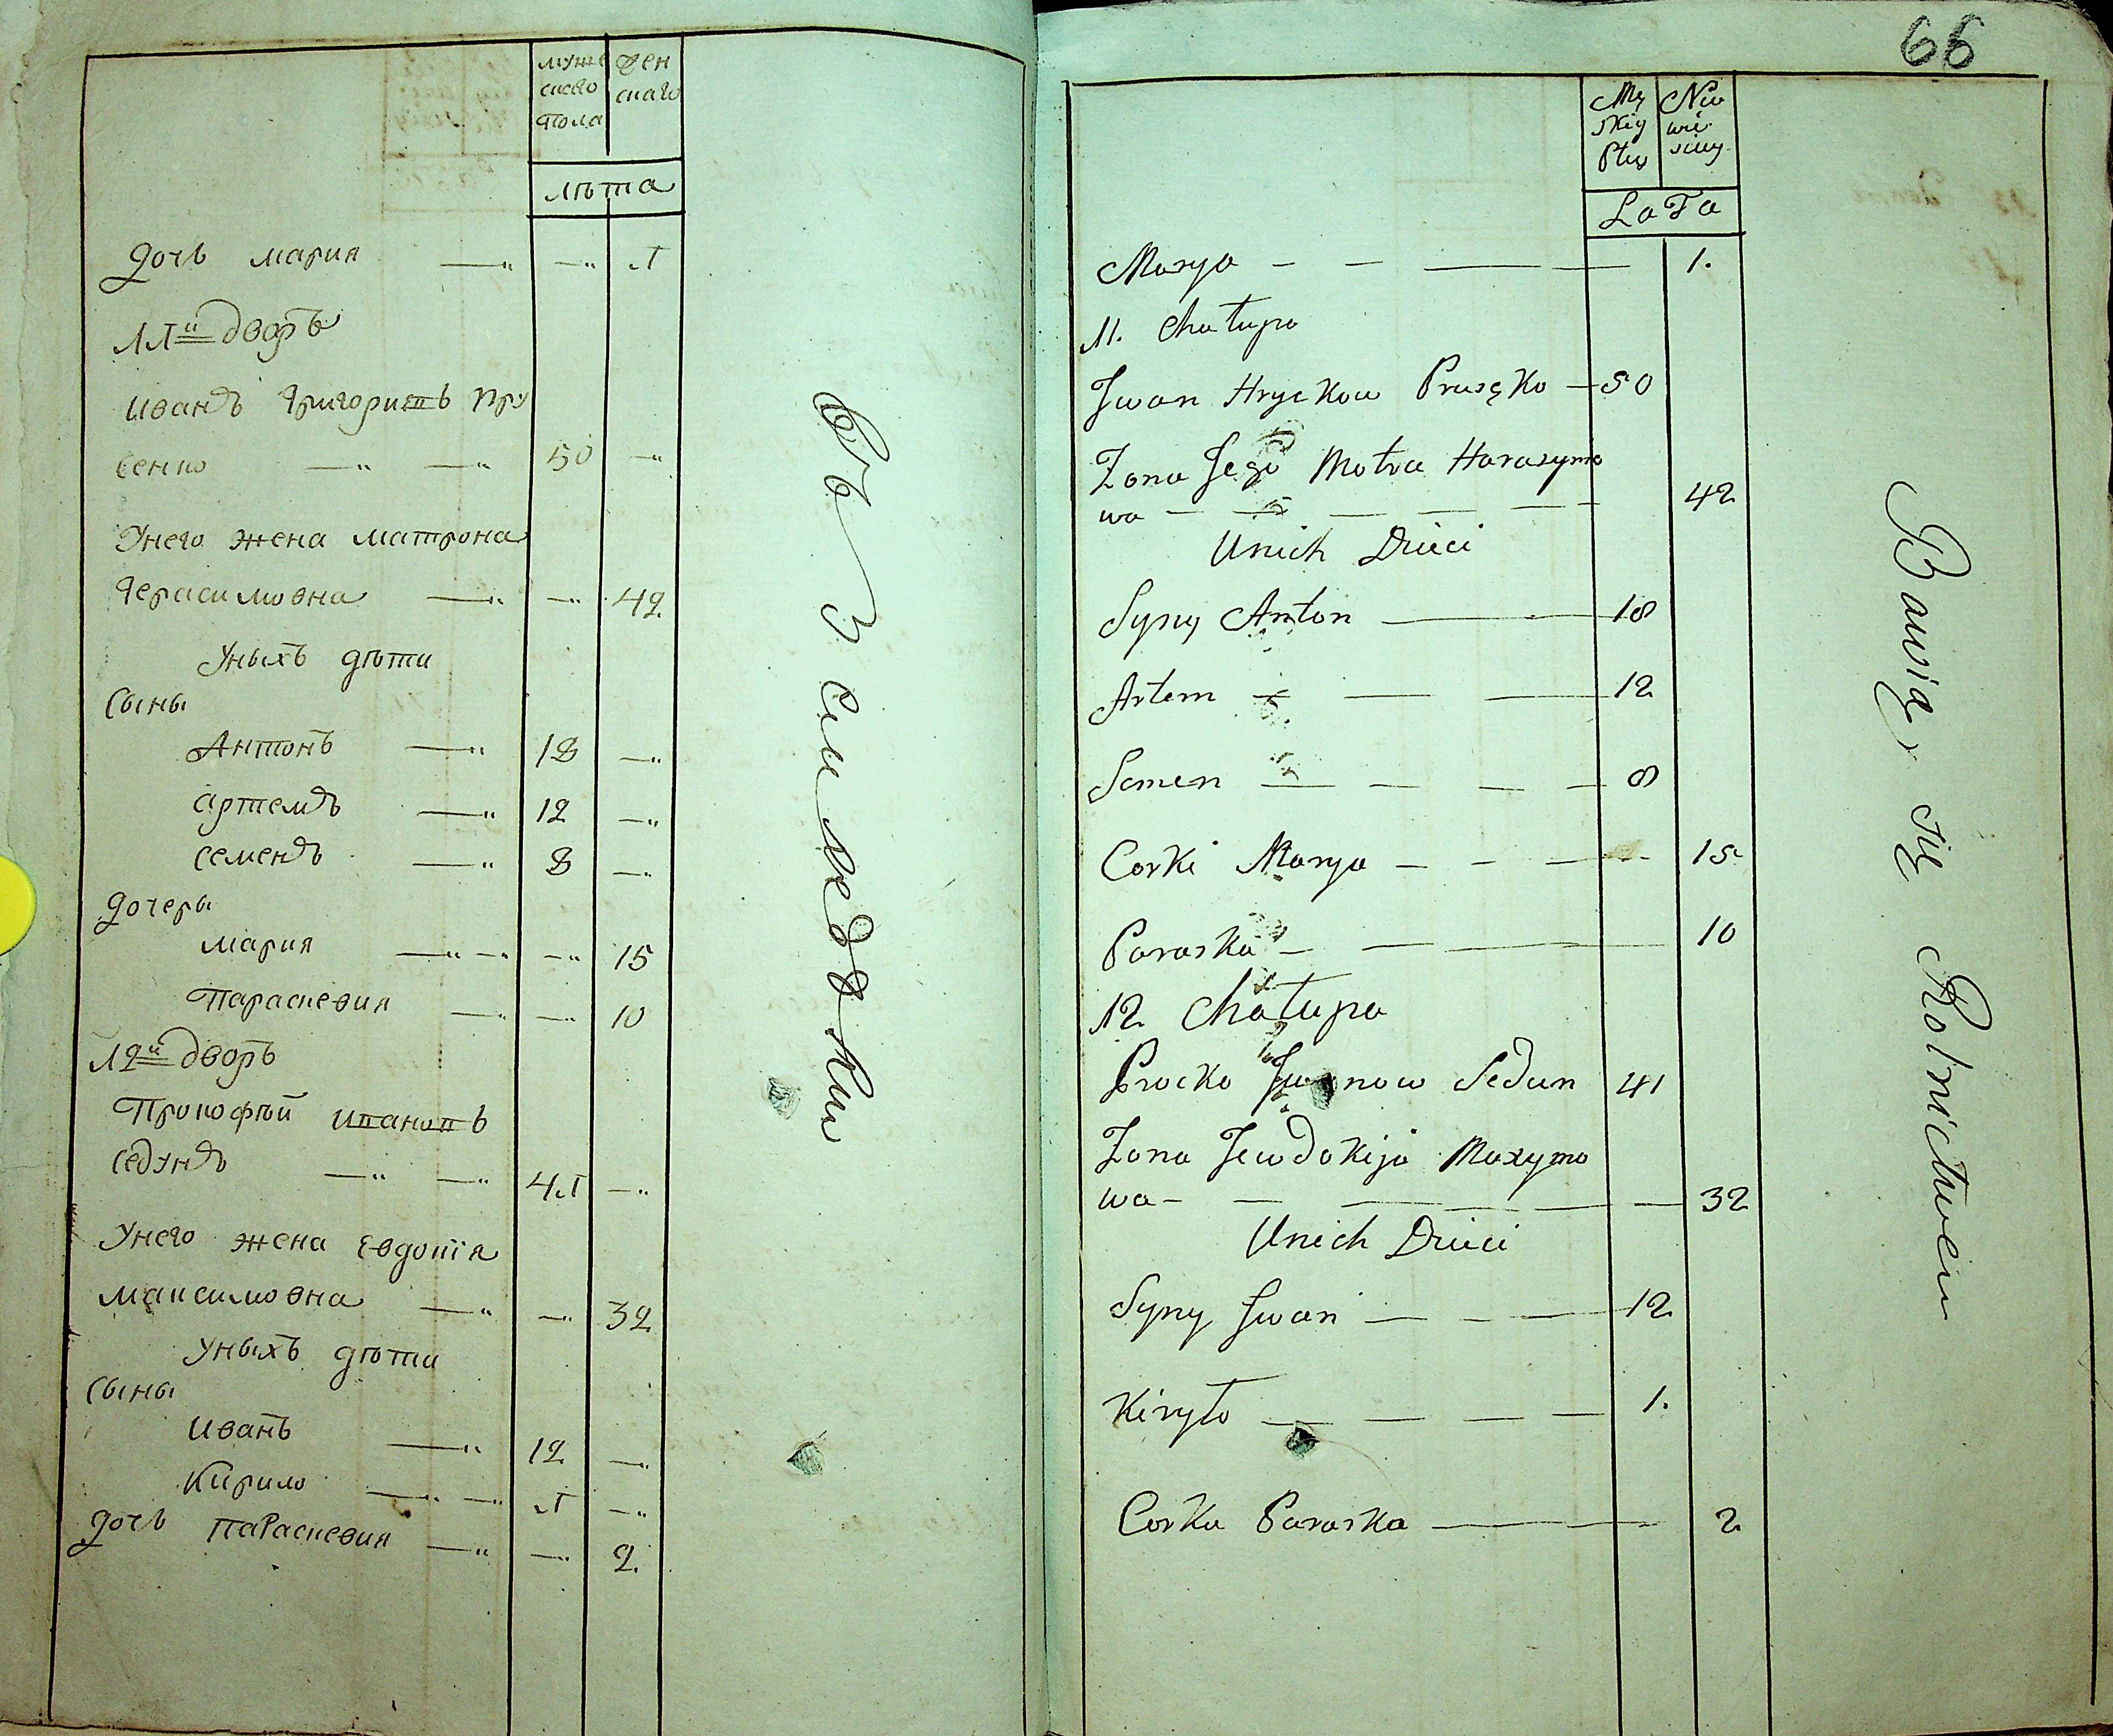 мужескаго пола
женскаго
лѣта
дочь мария 1
11й дворъ
иванъ григориевъ пру
сенко 50
Унего жена матрона
герасимовна 42
Уныхъ дѣти
сыны
Антонъ 18
артемъ 12
семенъ 8
дочеры
мария 15
Параскевия 10
12й дворъ
Прокофѣй ивановъ
седунъ 41
Унего жена Евдокія
максимовна 32
Уныхъ дѣти
сыны
иванъ 12
Кирило 1
дочь параскевия 2.
66
Męskiy Płey
Niewiesciey
Lata
Marya 1.
11. Chałupa
Jwan Hryckow Prusęko 50
Zona Jego Motra Harasymo
wa 42
Unich Dzieci
Syny Anton 18
Artem 12
Semen 8
Corki Marya 15
Paraska 10
12 Chałupa
Procko Jwanow Sedun 41
Zona Jewdokija Maxymo
wa 32
Unich Dzieci
Syny Jwan 12
Kiryło 1.
Corka Paraska 2
Bawią się Rolnictwem